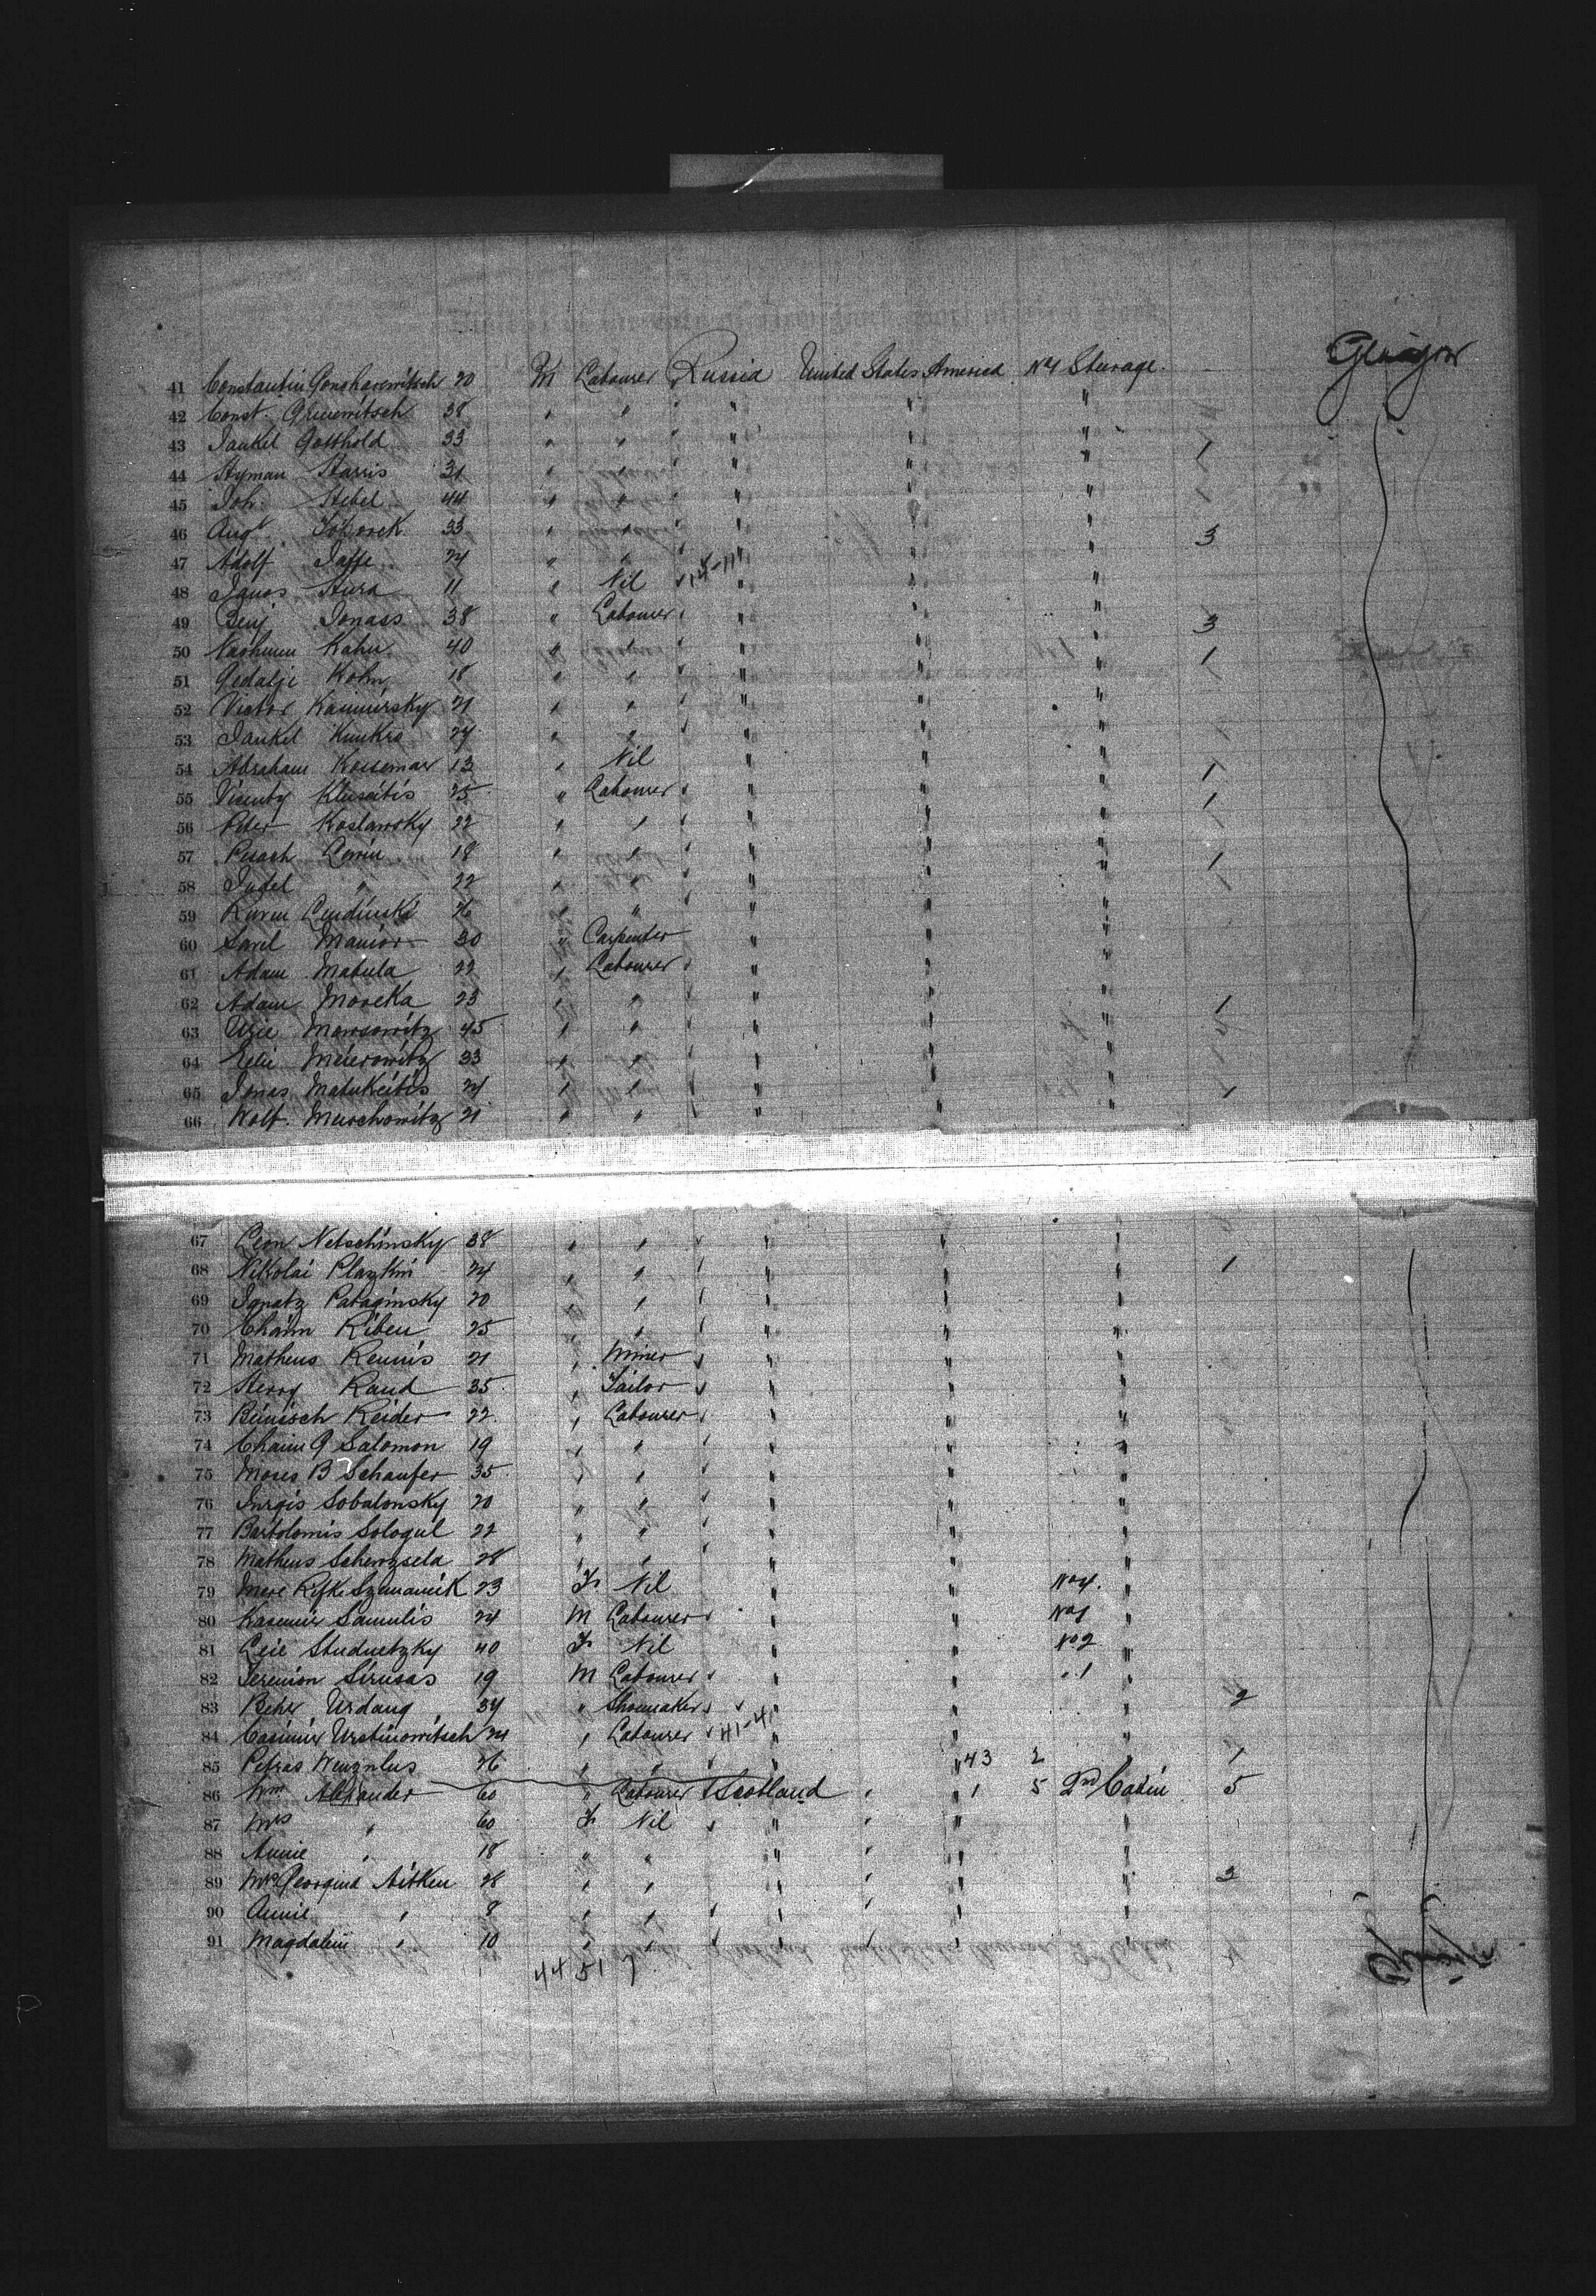 Glasgow
41 Constantin Gonoharewitsch 20 M Labourer Russia United States America No 1 Steerage.
42 Const. 38 " " " " "
43 Jankel Gotthold 33 " " " " " 1
44 Hyman Harris 31 " " " " "
45 Joh. Hebel 44 " " " " " 1
46 Augt 33 " " " " " 3
47 Adolf Jaffe 24 " " " "
48 Janos Hura 11 " Nil 14-11 " " "
49 Benj Jonass 38 " Labourer " " " 3
50 Nachmm Kahn 40 " " " " " 1
51 Gedalje Kohn 18 " " " " "
52 Victor Kasimirsky 21 " " " " "
53 Jankel 24 " " " " "
54 Abraham 13 " Nil " " " 1
55 Vicenty Kluseitis 25 " Labourer " " " 1
56 Peter Koslawsky 22 " " " " "
57 Pesach Lewin 18 " " " " " 1
58 Judel " 22 " " " " "
59 Lendinski 26 " " " " "
60 Savel Manior 30 " Carpenter " " "
61 Adam Matula 22 " Labourer " " "
62 Adam Moreka 23 " " " " " 1
63 Mowsowitz 45 " " " " "
64 Elie Meierowitz 33 " " " " "
65 Jonas Matukeitis 24 " " " " " 1
66 Wolf. Merschowitz 21 " " " " "
67 Leon Netschinsky 38 " " " " "
68 Nikolai Plazkin 24 " " " " " 1
69 Ignatz Pataginsky 20 " " " " "
70 Chaim Riben 25 " " " " "
71 Matheus Rennis 21 " Miner " " "
72 Herry Rand 35 " Tailor " " "
73 Beinisch Reider 22 " Labourer " " "
74 Chaim G Salomon 19 " " " " "
75 Moses B Schaufer 35 " " " " "
76 Jurgis Sobalonsky 20 " " " " "
77 Bartolomis Sologul 22 " " " " "
78 Matheus 28 " " " " "
79 Mere Rifke Szemanick 23 F Nil " " No 4. "
80 Kasemir Samulis 24 M Labourer " " No 1 "
81 Leie Studnetzky 40 F Nil " " No 2 "
82 Sirusas 19 M Labourer " " " 1 "
83 Beher Urdang 34 " Shoemaker " " " 2
84 Casimir Urstinowitsch 24 " Labourer 41-4 " " "
85 Petras 26 " " " " 43 2 1
86 Wm Alexander 60 " Labourer Scotland " 1 5 2nd Cabin 5
87 Mrs " 60 F Nil " " " "
88 Annie " 18 " " " " " "
89 Mrs Georgina Aitken 28 " " " " " " 3
90 Annie " 8 " " " " " "
91 Magdalen " 10 " " " " " "
44 51 7